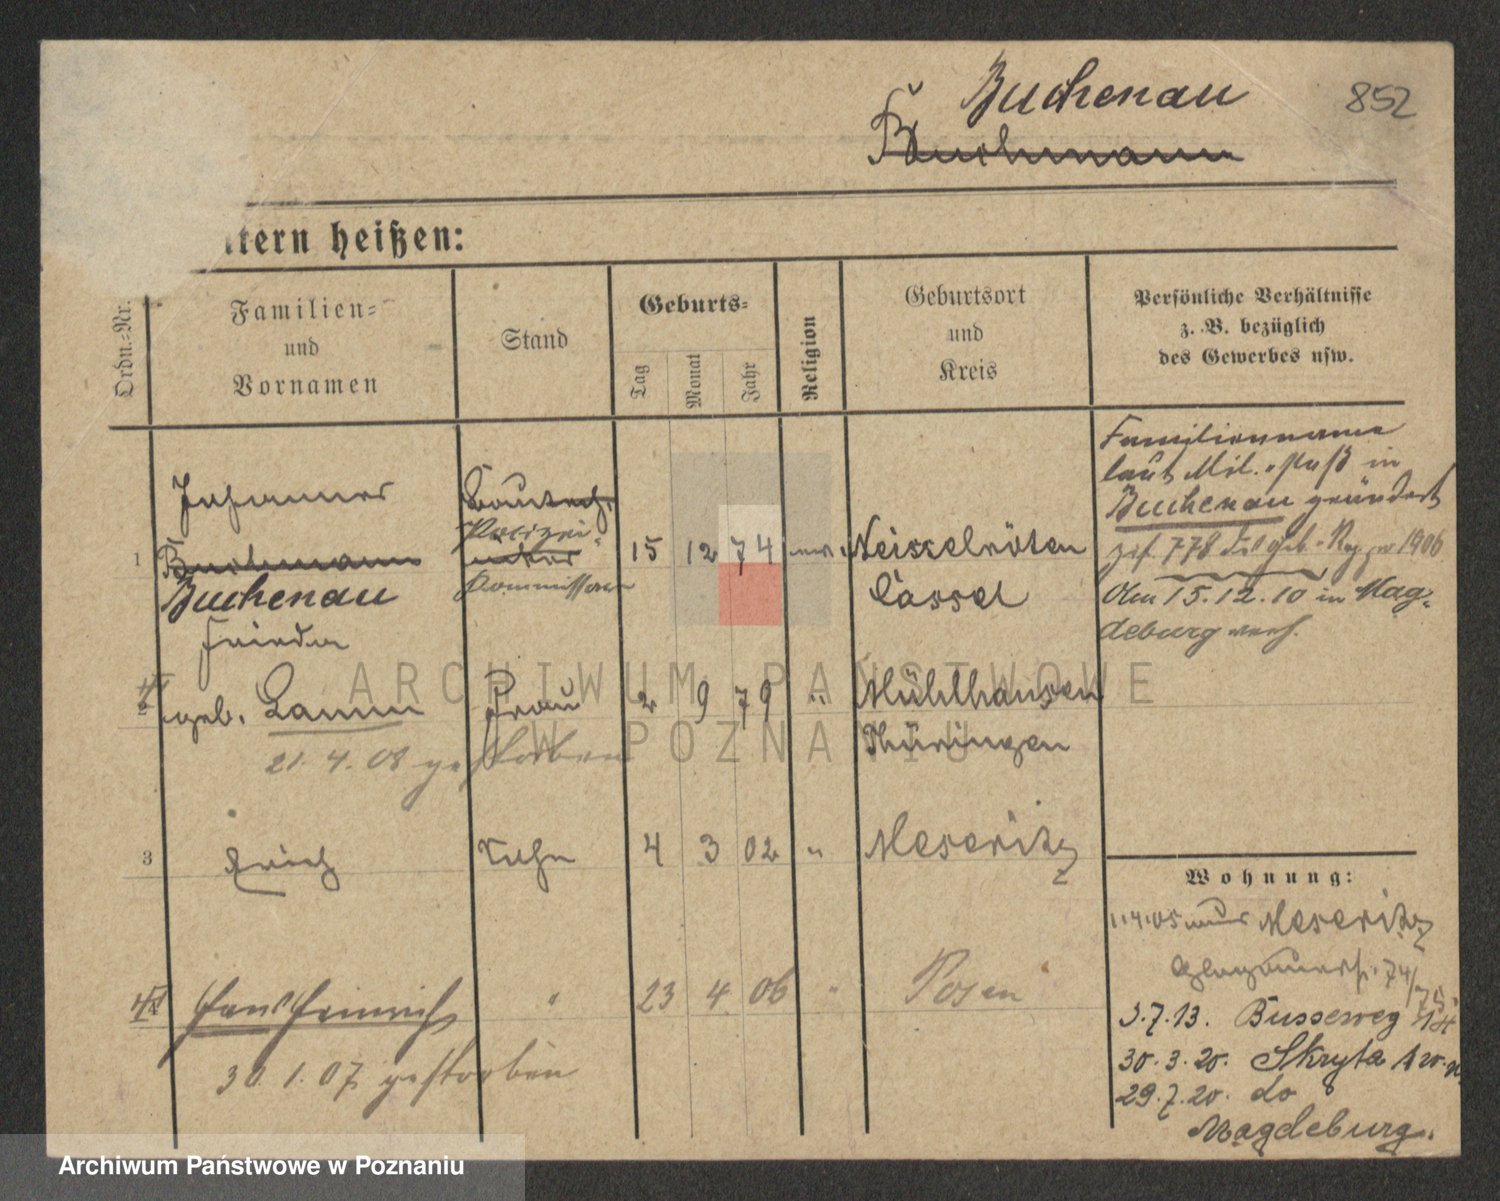 Buchenau 852
Buchmann
ltern heißen:
Ordn.-Nr. Familien- und Vornamen Stand Geburts- Tag Monat Jahr Religion Geburtsort und Kreis Persönliche Verhältnisse z. B. bezüglich des Gewerbes usw.
Familienname
laut Mil. Paß in
Buchenau geändert
778 Geb. Reg 1906
Am 15.12.10 in Mag-
deburg verh.
Johannes Bautech.
Polizei-
1 Buchmann 15 12 74
Buchenau Kommissar Cassel
Frieda
geb. Lamm Frau 2 9 79 " Mühlhausen
Thüringen
21.4.08 gestorben
3 Erich Sohn 4 3 02 " Meseritz
Wohnung:
1.4.05 aus Meseritz
Glogauerstr. 74/75
4 Hans Heinrich " 23 4 06 " Posen
3.7.13. Busseweg 14
30.1.07 gestorben
30.3.20. Skryta
29.7.20. do
Magdeburg.
ARCHIWUM PAŃSTWOWE
W POZNANIU
Archiwum Państwowe w Poznaniu